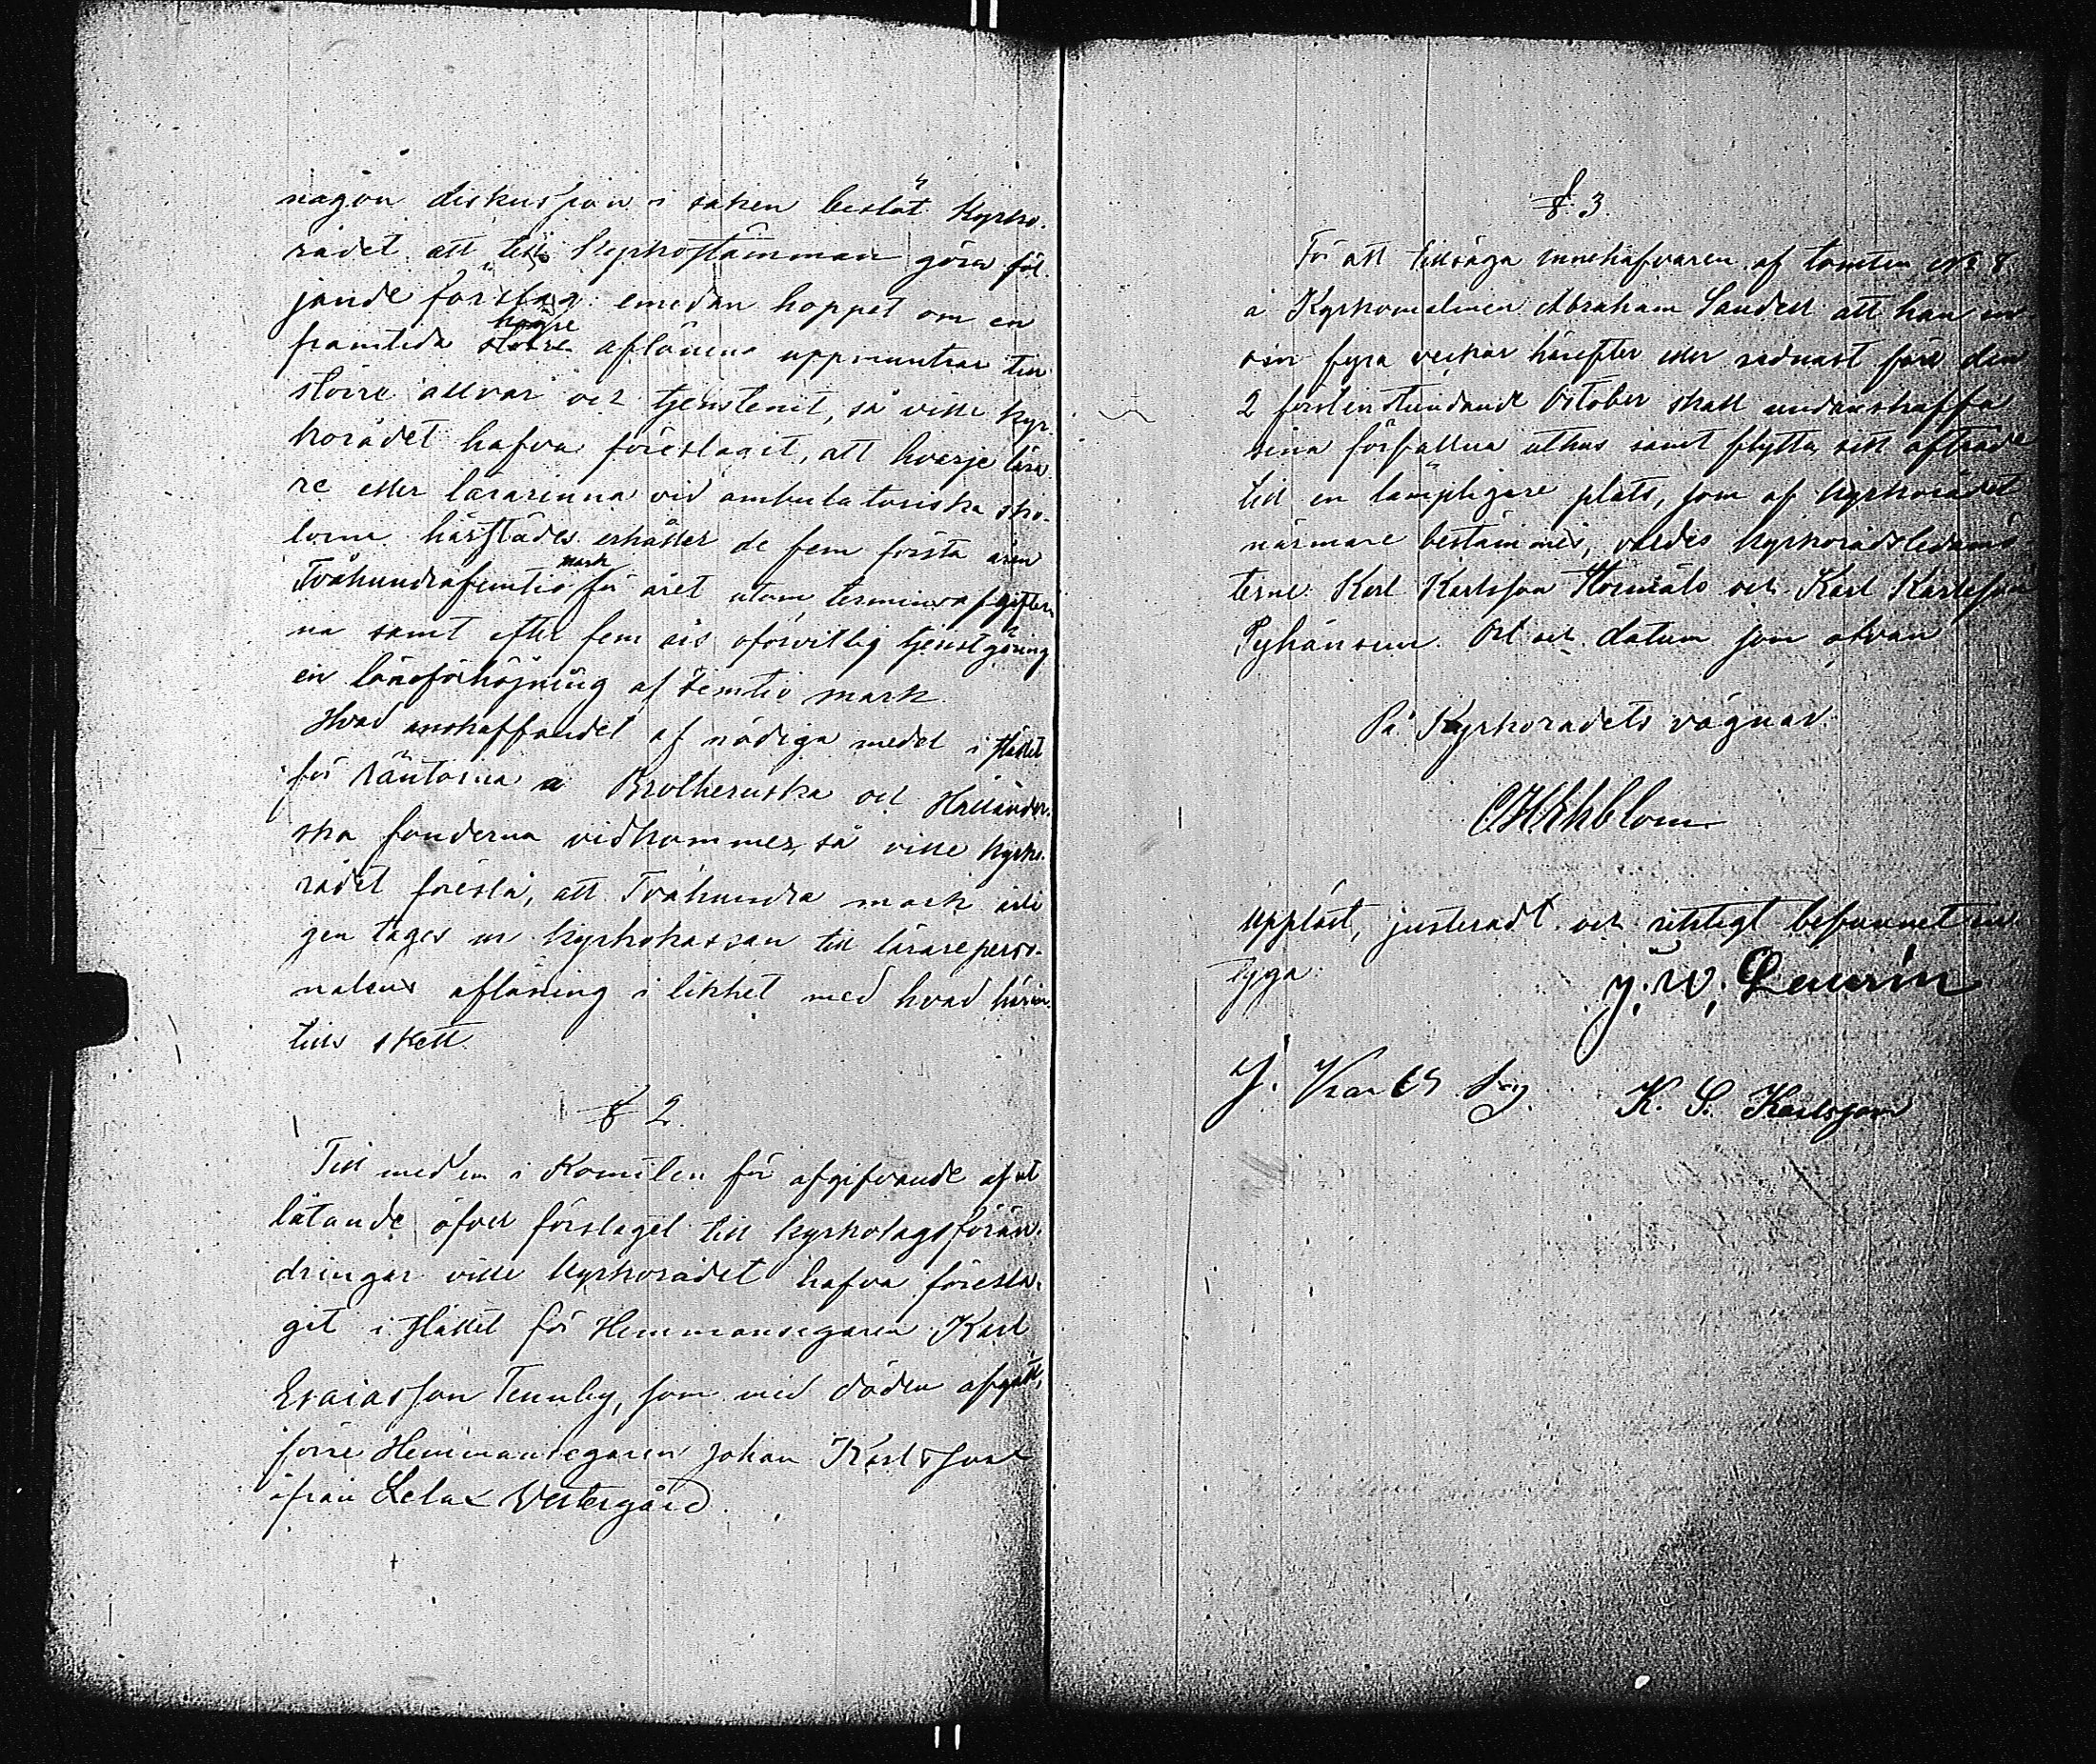 någon diskussion i saken beslöt Kyrko-
rådet att till Kyrkostämman göra föl-
jande förslag: emedan hoppet om en
framtida större högre aflönin uppmuntrar till
större allvar och tjenstenit, så ville kyr-
korådet hafva föreslagit, att hvarje lära-
re eller lärarinna vid ambulatoriska sko-
lorna härstädes erhåller de fem första åren
Tvåhundrafemtio mark för året utom terminsafgifter-
na samt efter fem års oförvitlig tjenstgöring
en löneförhöjning af Femtio mark.
Hvad anskaffandet af nödiga medel i stället
för räntorna a Brotheruska och Hallander-
ska fonderna vidkommer, så ville kyrko-
rådet föreslå, att Tvåhundra mark årli
gen tages ur kyrkokassan till lärareperso-
nalens aflöning i likhet med hvad härin-
tills skett.
§ 2.
Till medlem i Komiten för afgifvande af ut
låtande öfver förslaget till kyrkolagsförän-
dringar ville Kyrkorådet hafva föresla-
git i stället för Hemmansegaren Karl
Esaiasson Tennby, som med döden afgått,
förre Hemmansegaren Johan Karlsson
ifrån Lelax Westergård.
§ 3.
För att tillsäga innehafvaren af tomten № 8
å Kyrkomalmen Abraham Sandell att han in-
om fyra veckor härefter eller sednast före den
2 förstinstundande October skall undanskaffa
sina förfallna uthus samt flytta sitt afträde
till en lämpligare plats, som af kyrkorådet
närmare bestämmes, valdes kyrkorådsledamö
terne Karl Karlsson Stornäls och Karl Karlsson
Pyhänsun. Ort och datum som ofvan
På Kyrkorådets vägnar:
C H Ekblom
Uppläst, justeradt och riktigt befunnet in-
tyga:
J. W. Laurin
J. Karlsson
K. S. Karlsson